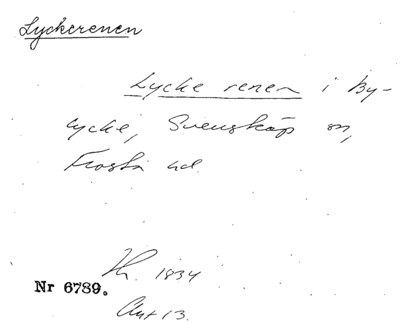 Lyckerenen
Lycke renen i By-
lycke, Svensköp sn,
Frosta hd.
Th. 1834
Nr 6789.
Akt 13.